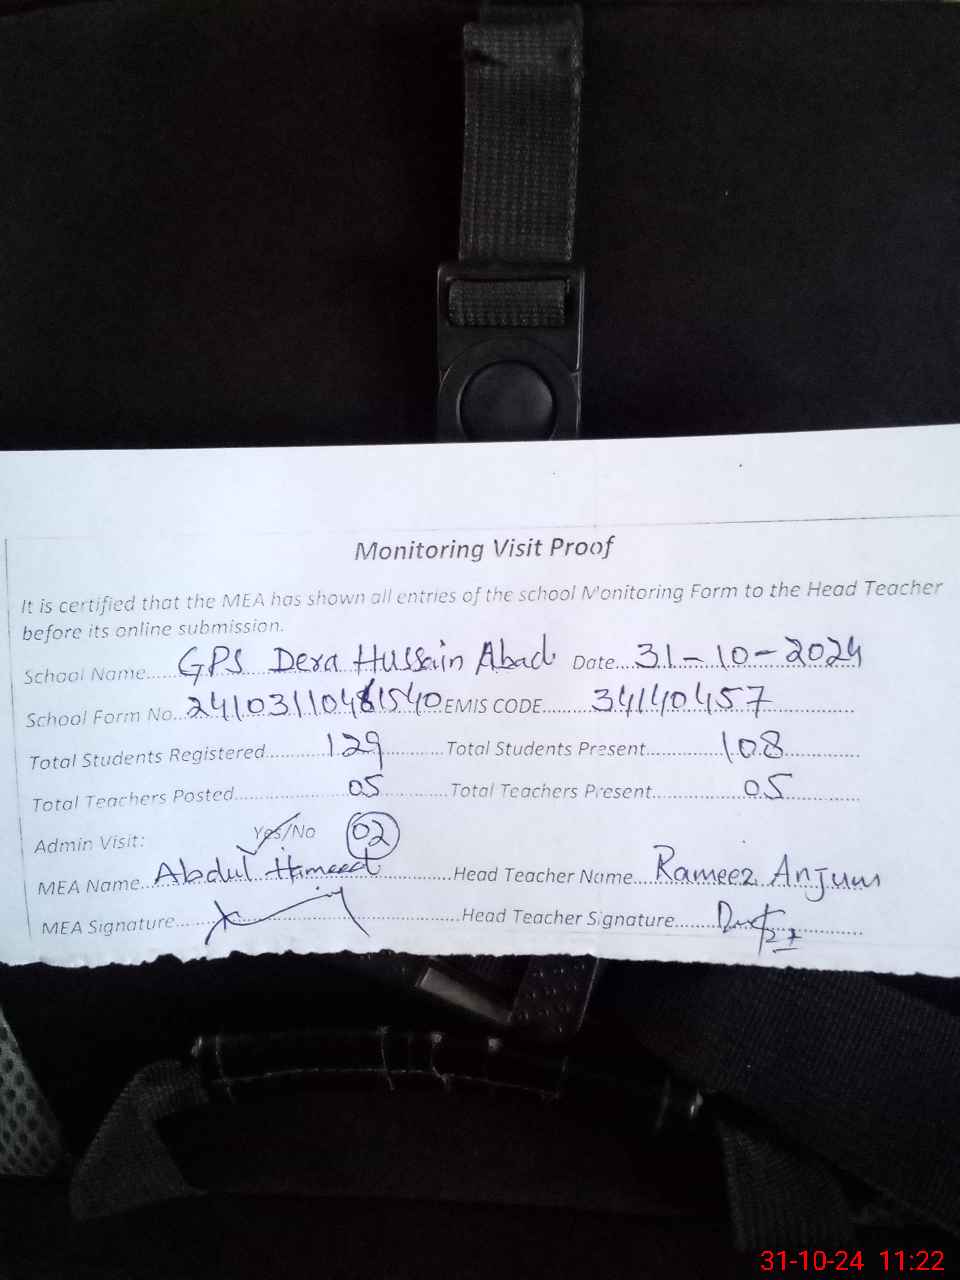 Monitoring Visit Proof
It is certified that the MEA has shown all entries of the school Monitoring Form to the Head Teacher
before its online submission.
School Name....GPS Dera Hussain Abad Date...31-10-2024
School Form No..241031104 1540 EMIS CODE........34140457
Total Students Registered.........129..........Total Students Present............108
Total Teachers Posted................05..........Total Teachers Present............05
Admin Visit: Yes/No 02
MEA Name..Abdul Hameed..........Head Teacher Name...Rameez Anjum
MEA Signature..............................Head Teacher Signature..........
31-10-24 11:22